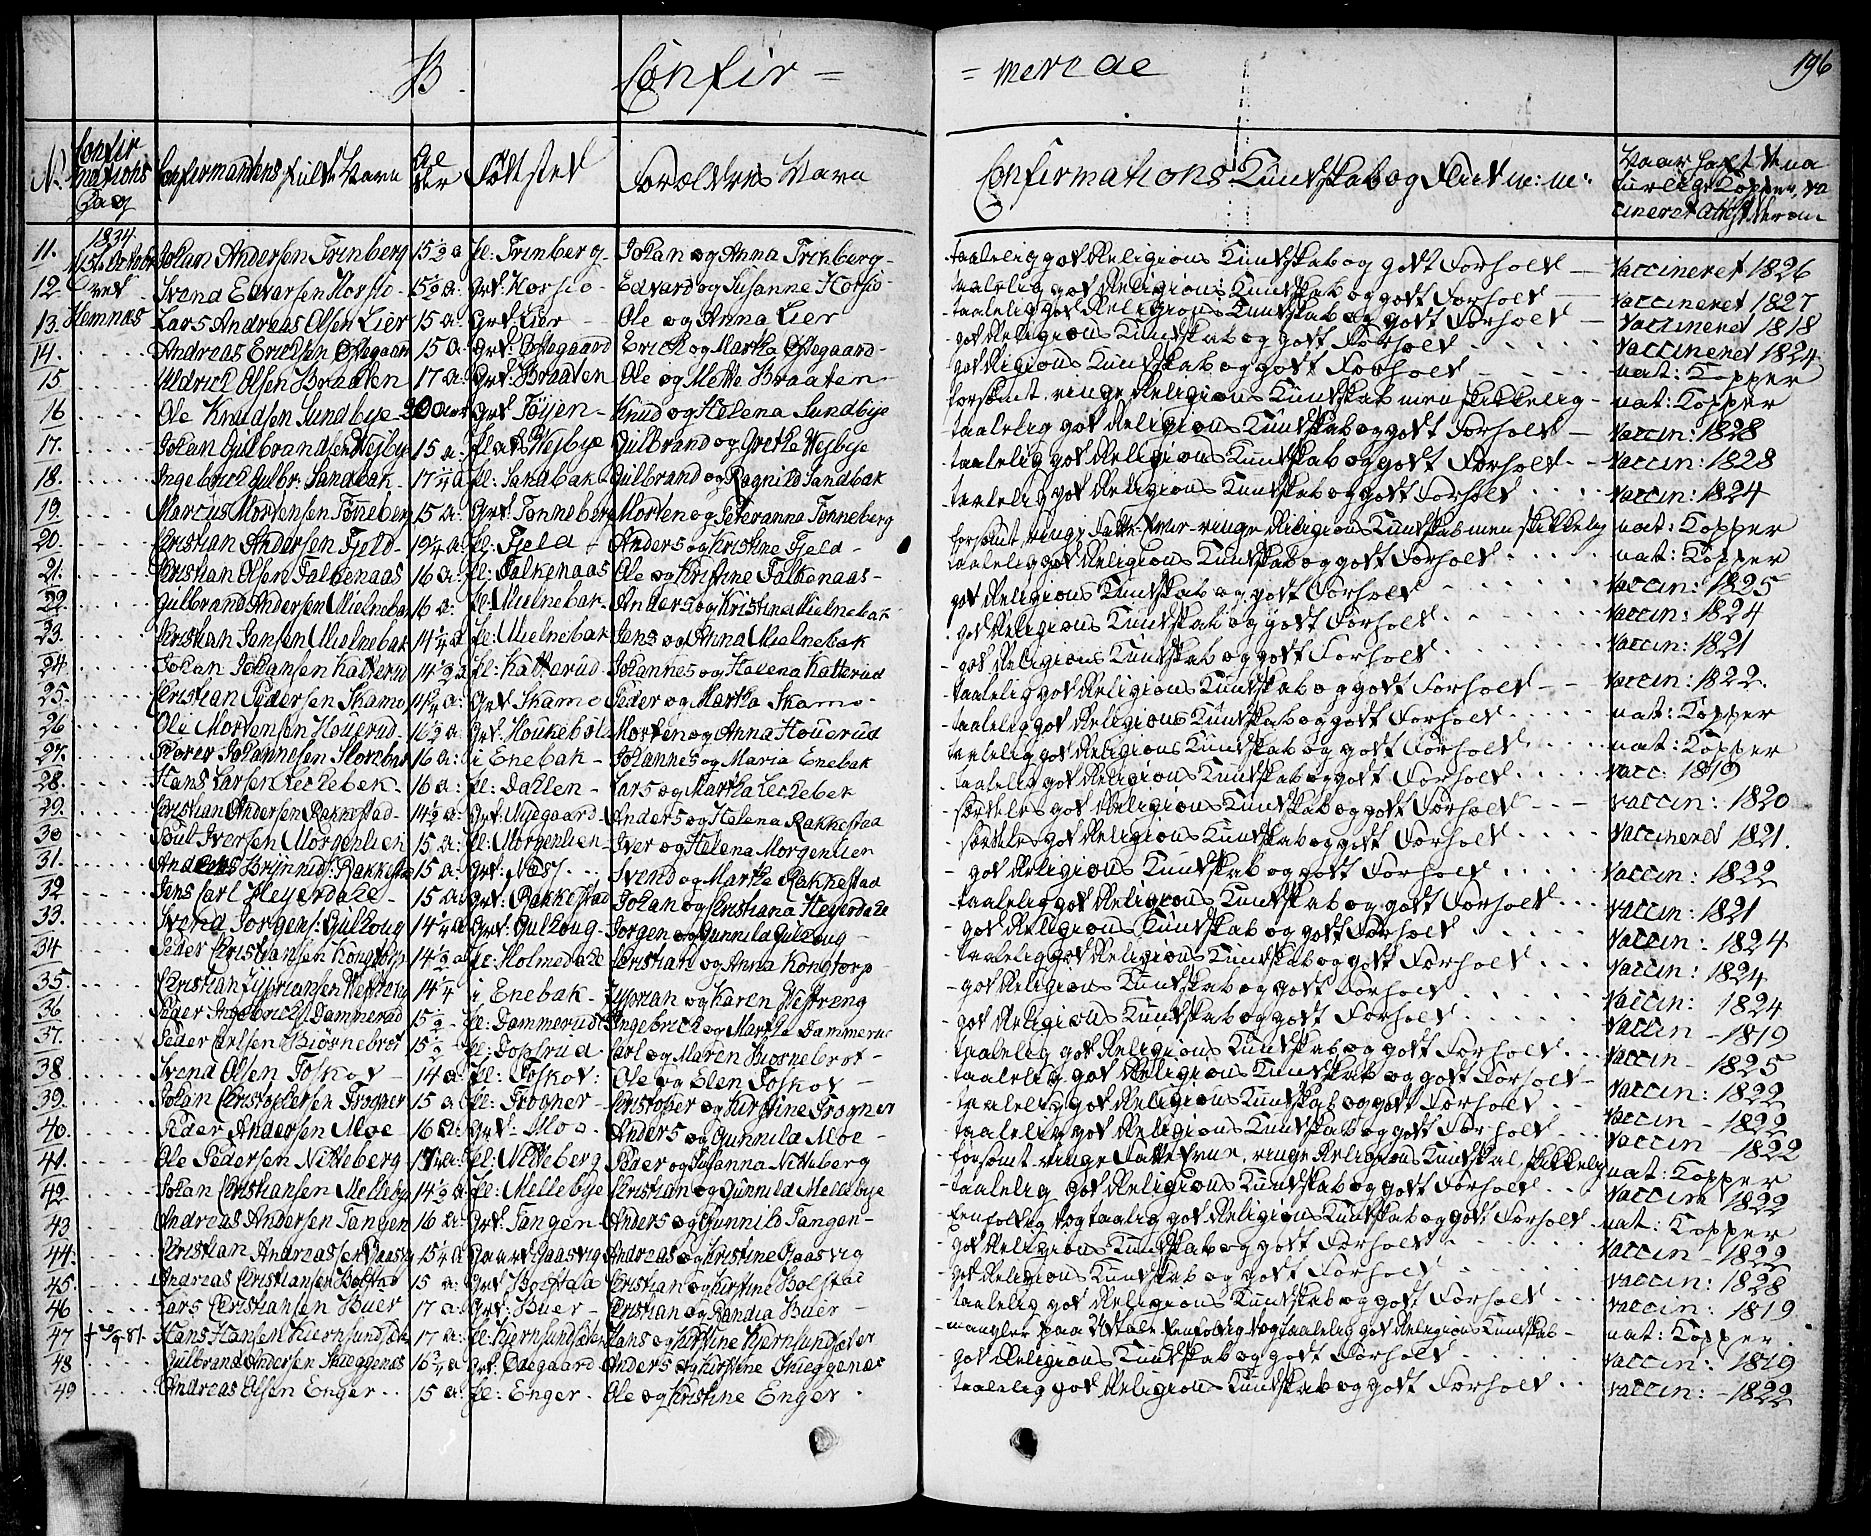 B. Confir = = merede 196
No. Confirmations Dag Confirmandens fulde Navn Alder Fødsted Forældres Navn Confirmations Kundskab og Flid m: m: Naar haft de naturlige Kopper, vaccineret
11. 1834 15de October Johan Andersen Trinberg 15 1/2 a pl. Trinberg - Johan og Anna Trinberg - taalelig god Religions Kundskab og godt Forhold - Vaccineret 1826
12. ved Svend Edvarsen Horsio - 15 1/2 a: Grd. Horsio - Edvard og Susanne Horsio - taalelig god Religions Kundskab og godt Forhold - Vaccineret 1827
13. Hemnæs Lars Andreas Olsen Lier 15 a: Grd Lier - Ole og Anna Lier - taalelig god Religions Kundskab og godt Forhold - Vaccineret 1818
14. Andreas Ericksen Østegaard 15 a: Grd: Østegaard Erick og Martha Østegaard - god Religions Kundskab og godt Forhold Vaccineret 1824
15 Uldrick Olsen Braaten 17 a: Grd: Braaten Ole og Mette Braaten god Religions Kundskab og godt Forhold - nat: Kopper
16 Ole Knudsen Sundbye 20 Aar Grd Tøyen - Knud og Helena Sundbye forsømt ringe Religions Kundskab men skikkelig - nat: Kopper
17. Johan Gulbrandsen Westbye 15 a: pl: Westbye Gulbrand og Grethe Westbye - taalelig god Religions Kundskab og godt Forhold - vaccin: 1828
18. Ingebrick Gulbr: Sandbak - 17 1/4 a pl: Sandbak - Gulbrand og Ragnild Sandbak taalelig god Religions Kundskab og godt Forhold - vaccin: 1828
19. Marcus Mortensen Tønneberg 15 a: Grd: Tønneberg Morten og Peteranna Tønneberg taalelig god Religions Kundskab og godt Forhold vaccin: 1824
20. Christian Andersen Fjeld - 19 1/4 a: pl: Fjeld - Anders og Kristine Fjeld - forsømt, ringe Fatte Evne - ringe Religions Kundskab men skikkelig nat: Kopper
21. Christian Olsen Falkenaas 16 a: pl: Falkenaas Ole og Kristine Falkenaas - taalelig god Religions Kundskab og godt Forhold nat: Kopper
22 Gulbrand Andersen Mielnebak 16 a: pl: Mielnebak - Anders og Kristina Mielnebak god Religions Kundskab og godt Forhold vaccin: 1825
23. Christian Jensen Mielnebak 14 1/4 a pl: Mielnebak Jens og Anna Mielnebak god Religions Kundskab og godt Forhold vaccin: 1824
24. Johan Johansen Katterud 14 1/2 a pl: Katterud - Johannes og Helena Katterud - god Religions Kundskab og godt Forhold vaccin: 1821
25. Christian Pedersen Skamo 14 1/4 a: Grd Skamo Peder og Martha Skamo - - taalelig god Religions Kundskab og godt Forhold - - vaccin: 1822.
26 Ole Mortensen Houerud - 16 1/2 a: Grd: Morten og Anna Houerud - taalelig god Religions Kundskab og godt Forhold nat: Kopper
27. Johannesen 16 a: i Enebak - Johannes og Maria Enebak taalelig god Religions Kundskab og godt Forhold nat: Kopper
28. Hans Larsen Leckebek - 16 a: pl: Dahlen - Lars og Martha Leckebek - taalelig god Religions Kundskab og godt Forhold vacc: 1819
29. Christian Andersen Rakkestad - 14 1/2 a: Grd: Myegaard - Anders og Helena Rakkestad særdeles god Religions Kundskab og godt Forhold - - vaccin: 1820
30 Poul Iversen Morgenlien 15 a: pl: Morgenlien - Iver og Helena Morgenlien - særdeles god Religions Kundskab og godt Forhold Vaccineret 1821.
31. Brynnild: Rakkestad 15 a: Grd: Næss Svend og Marthe Rakkestad - god Religions Kundskab og godt Forhold vaccin: 1822
32 Jens Carl Heyerdale - 15 a: Grd: Rakkestad Johan og Christiana Heyerdale - taalelig god Religions Kundskab og godt Forhold vaccin: 1821
33. Svend Jorgens: Gulhoug 14 1/4 a Grd: Gulhoug - Jorgen og Gunnild Gulhoug - god Religions Kundskab og godt Forhold vaccin: 1824
34 Peder Christiansen Kongtorp 14 1/2 a pl: Holmedale Christian og Anna Kongtorp - - taalelig god Religions Kundskab og godt Forhold vaccin: 1824
35. Christian Zyprians en 14 1/4 i Enebak - Zyprian og Karen Vestreng - god Religions Kundskab og godt Forhold vaccin: 1824
36 Peder Ingebricks: Dammerud 15 1/2 - pl: Dammerud Ingebrick og Marthe Dammerud - god Religions Kundskab og godt Forhold vaccin - 1819
37. Peder Carlsen Biørnebrot 15 1/2 - pl: Carl og Maren Biørnebrot - taalelig god Religions Kundskab og godt Forhold vaccin - 1825
38 Svend Olsen Foskov - 14 a: pl: Foskov: Ole og Elen Foskov - - taalelig god Religions Kundskab og godt Forhold - vaccin: 1822
39. Johan Christophersen Trogner 15 a: pl: Trogner - Christopher og Kirstine Trogner - taalelig god Religions Kundskab og godt Forhold vaccin - 1822
40. Peder Andersen Moe - 16 a: Grd - Moe - Anders og Gunnild Moe - - taalelig god Religions Kundskab og godt Forhold vaccin - 1822
41. Ole Pedersen Nitteberg 17 a: pl: Nitteberg Peder og Susanna Nitteberg - forsømt ringe Fatte Evne, ringe Religions Kundskab, skikkelig nat: Kopper
42. Johan Christiansen Mellebye 14 1/2 a pl: Mellebye Christian og Gunnild Mellebye - taalelig god Religions Kundskab og godt Forhold vaccin 1822
43 Andreas Andersen Tangen 16 a: Grd: Tangen - Anders og Gunnild Tangen - Eenfoldig dog taalig god Religions Kundskab og godt Forhold nat: Kopper
44. Christian Andreasen Haasvig 15 1/4 a Haasvig Andreas og Kristine Haasvig - god Religions Kundskab og godt Forhold vaccin - 1822
45. Andreas Christiansen Bolstad 15 a: Grd Bolstad Christian og Kirstine Bolstad - god Religions Kundskab og godt Forhold vaccin: 1828
46 Lars Christiansen Buer 17 a: Grd: Buer - Christian og Randia Buer - - taalelig god Religions Kundskab og godt Forhold vaccin: 1819
47 Hans Hansen Kiernsundsæter 17 a: pl. Kjernsundsæter Hans og Kirstine Kjernsundsæter - mangler paa Mæle Eenfoldig dog taalelig god Religions Kundskab - nat: Kopper
48 Gulbrand Andersen Skieggenæs 16 3/4 a: Grd: Ødegaard Anders og Kirstine Skieggenæs god Religions Kundskab og godt Forhold vaccin: 1819
49 Andreas Olsen Enger 15 a: pl: Enger - Ole og Christine Enger - taalelig god Religions Kundskab og godt Forhold vaccin: - 1822